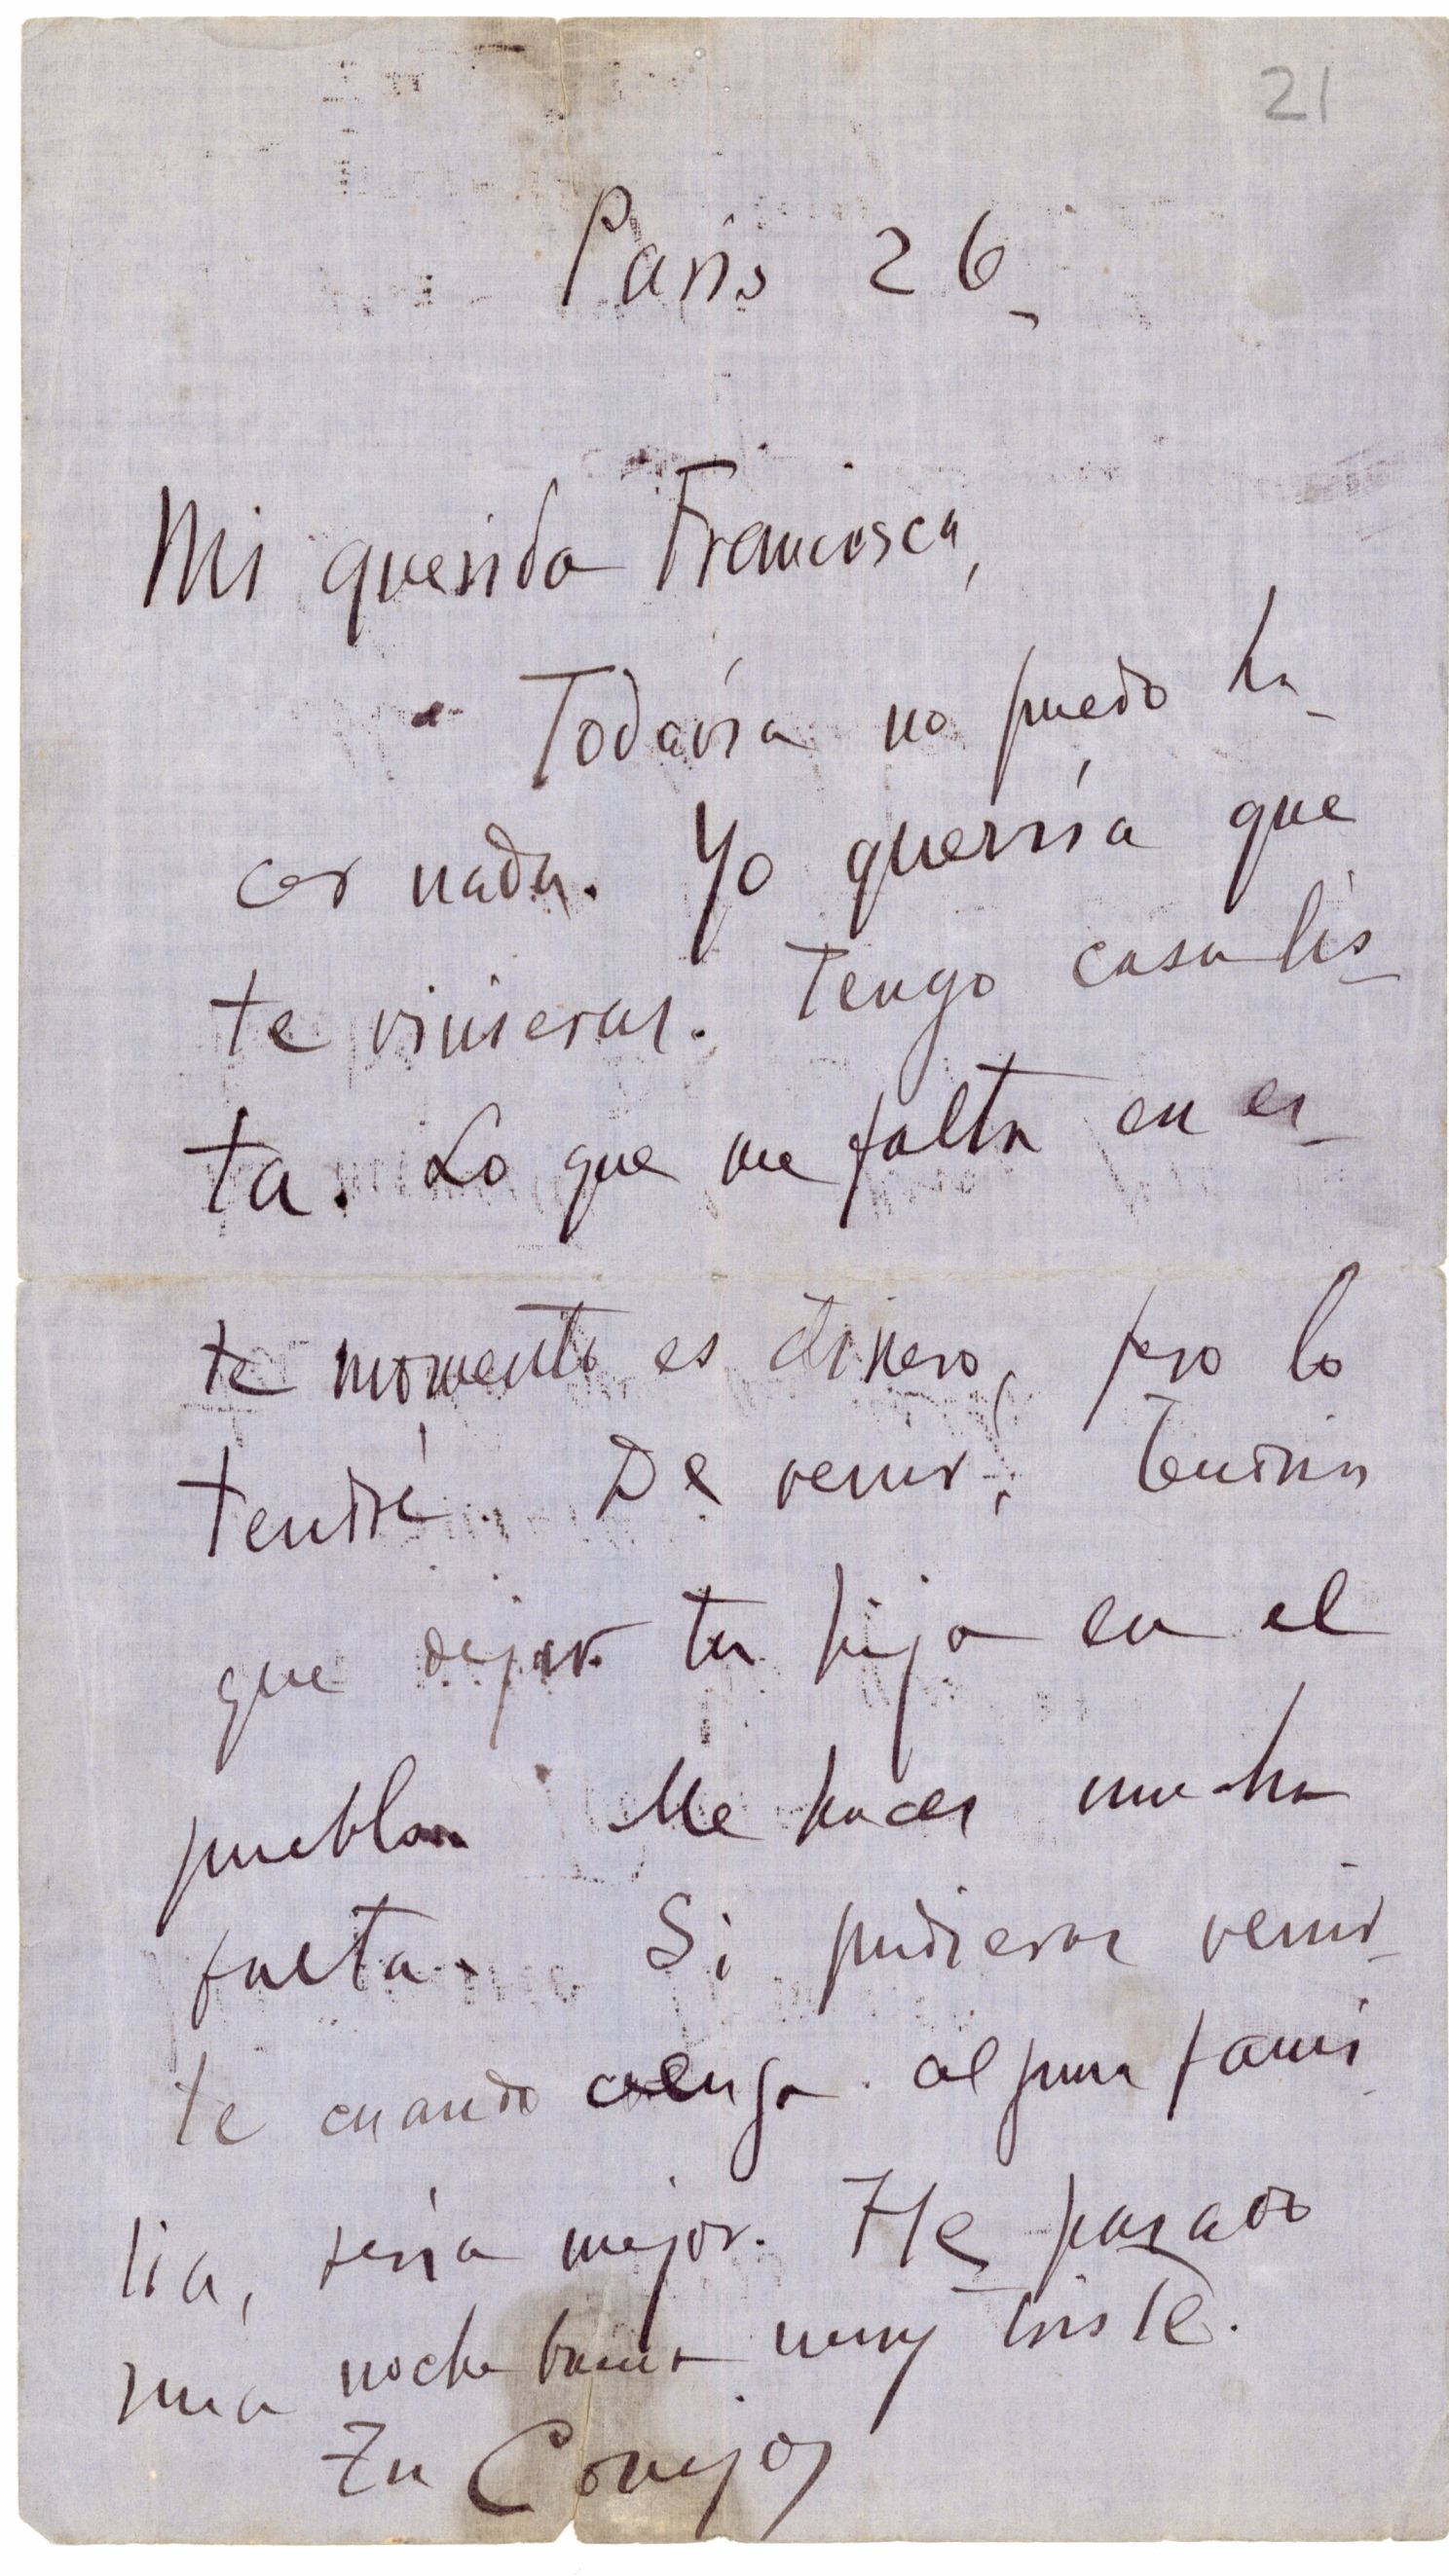 21
Paris 26
Mi querida Francisca,
Todavía no puedo ha-
cer nada. Yo querría que
te vinieras. Tengo casa lis-
ta. Lo que me falta en es-
te momento es dinero, pero lo
tendré. De venir, tendrías
que dejar tu hija en el
pueblo. Me haces mucha
falta. Si pudieras venir-
te cuando venga alguna fami-
lia, sería mejor. He pasado
una noche buena muy triste.
Tu Conejo